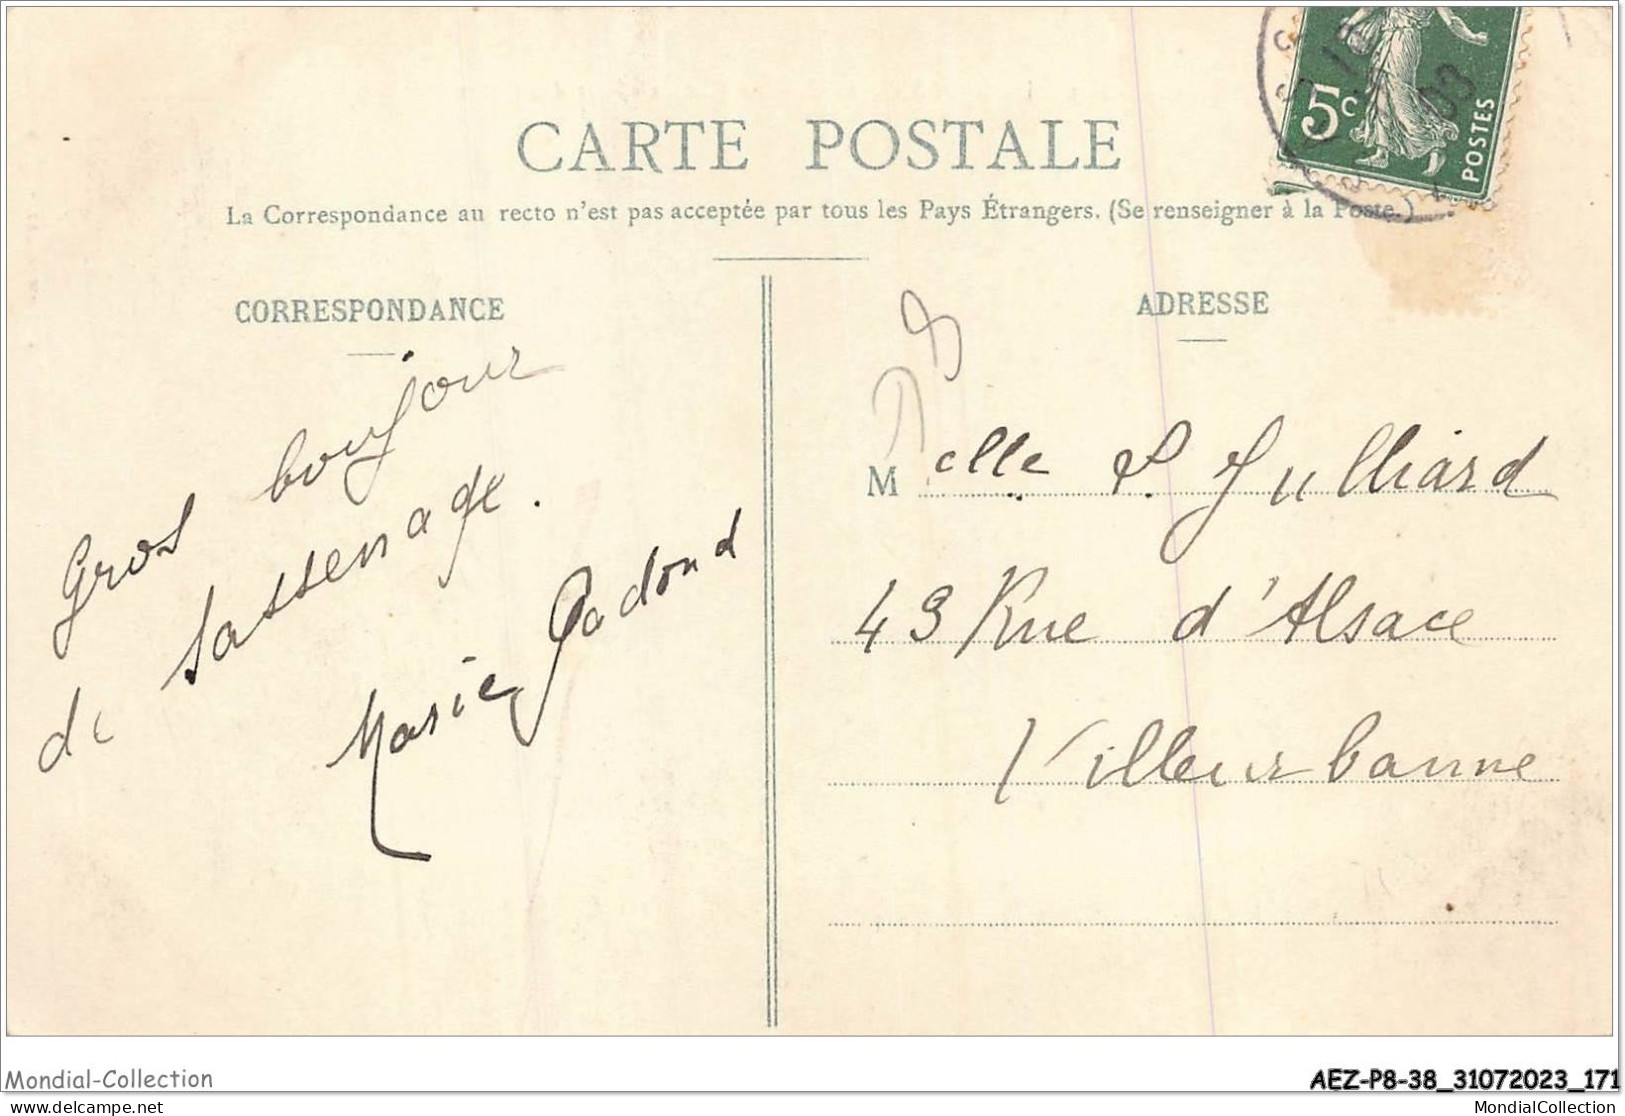 CARTE POSTALE
La Correspondance au recto n'est pas acceptée par tous les Pays Étrangers. (Se renseigner à la Poste.)
5c
POSTES
CORRESPONDANCE
Gros bonjour
de Sassenage.
Marie Padond
ADRESSE
Melle P. Julliard
43 Rue d'Alsace
Villeurbanne
Mondial-Collection
delcampe.net
AEZ-P8-38_31072023_171
MondialCollection